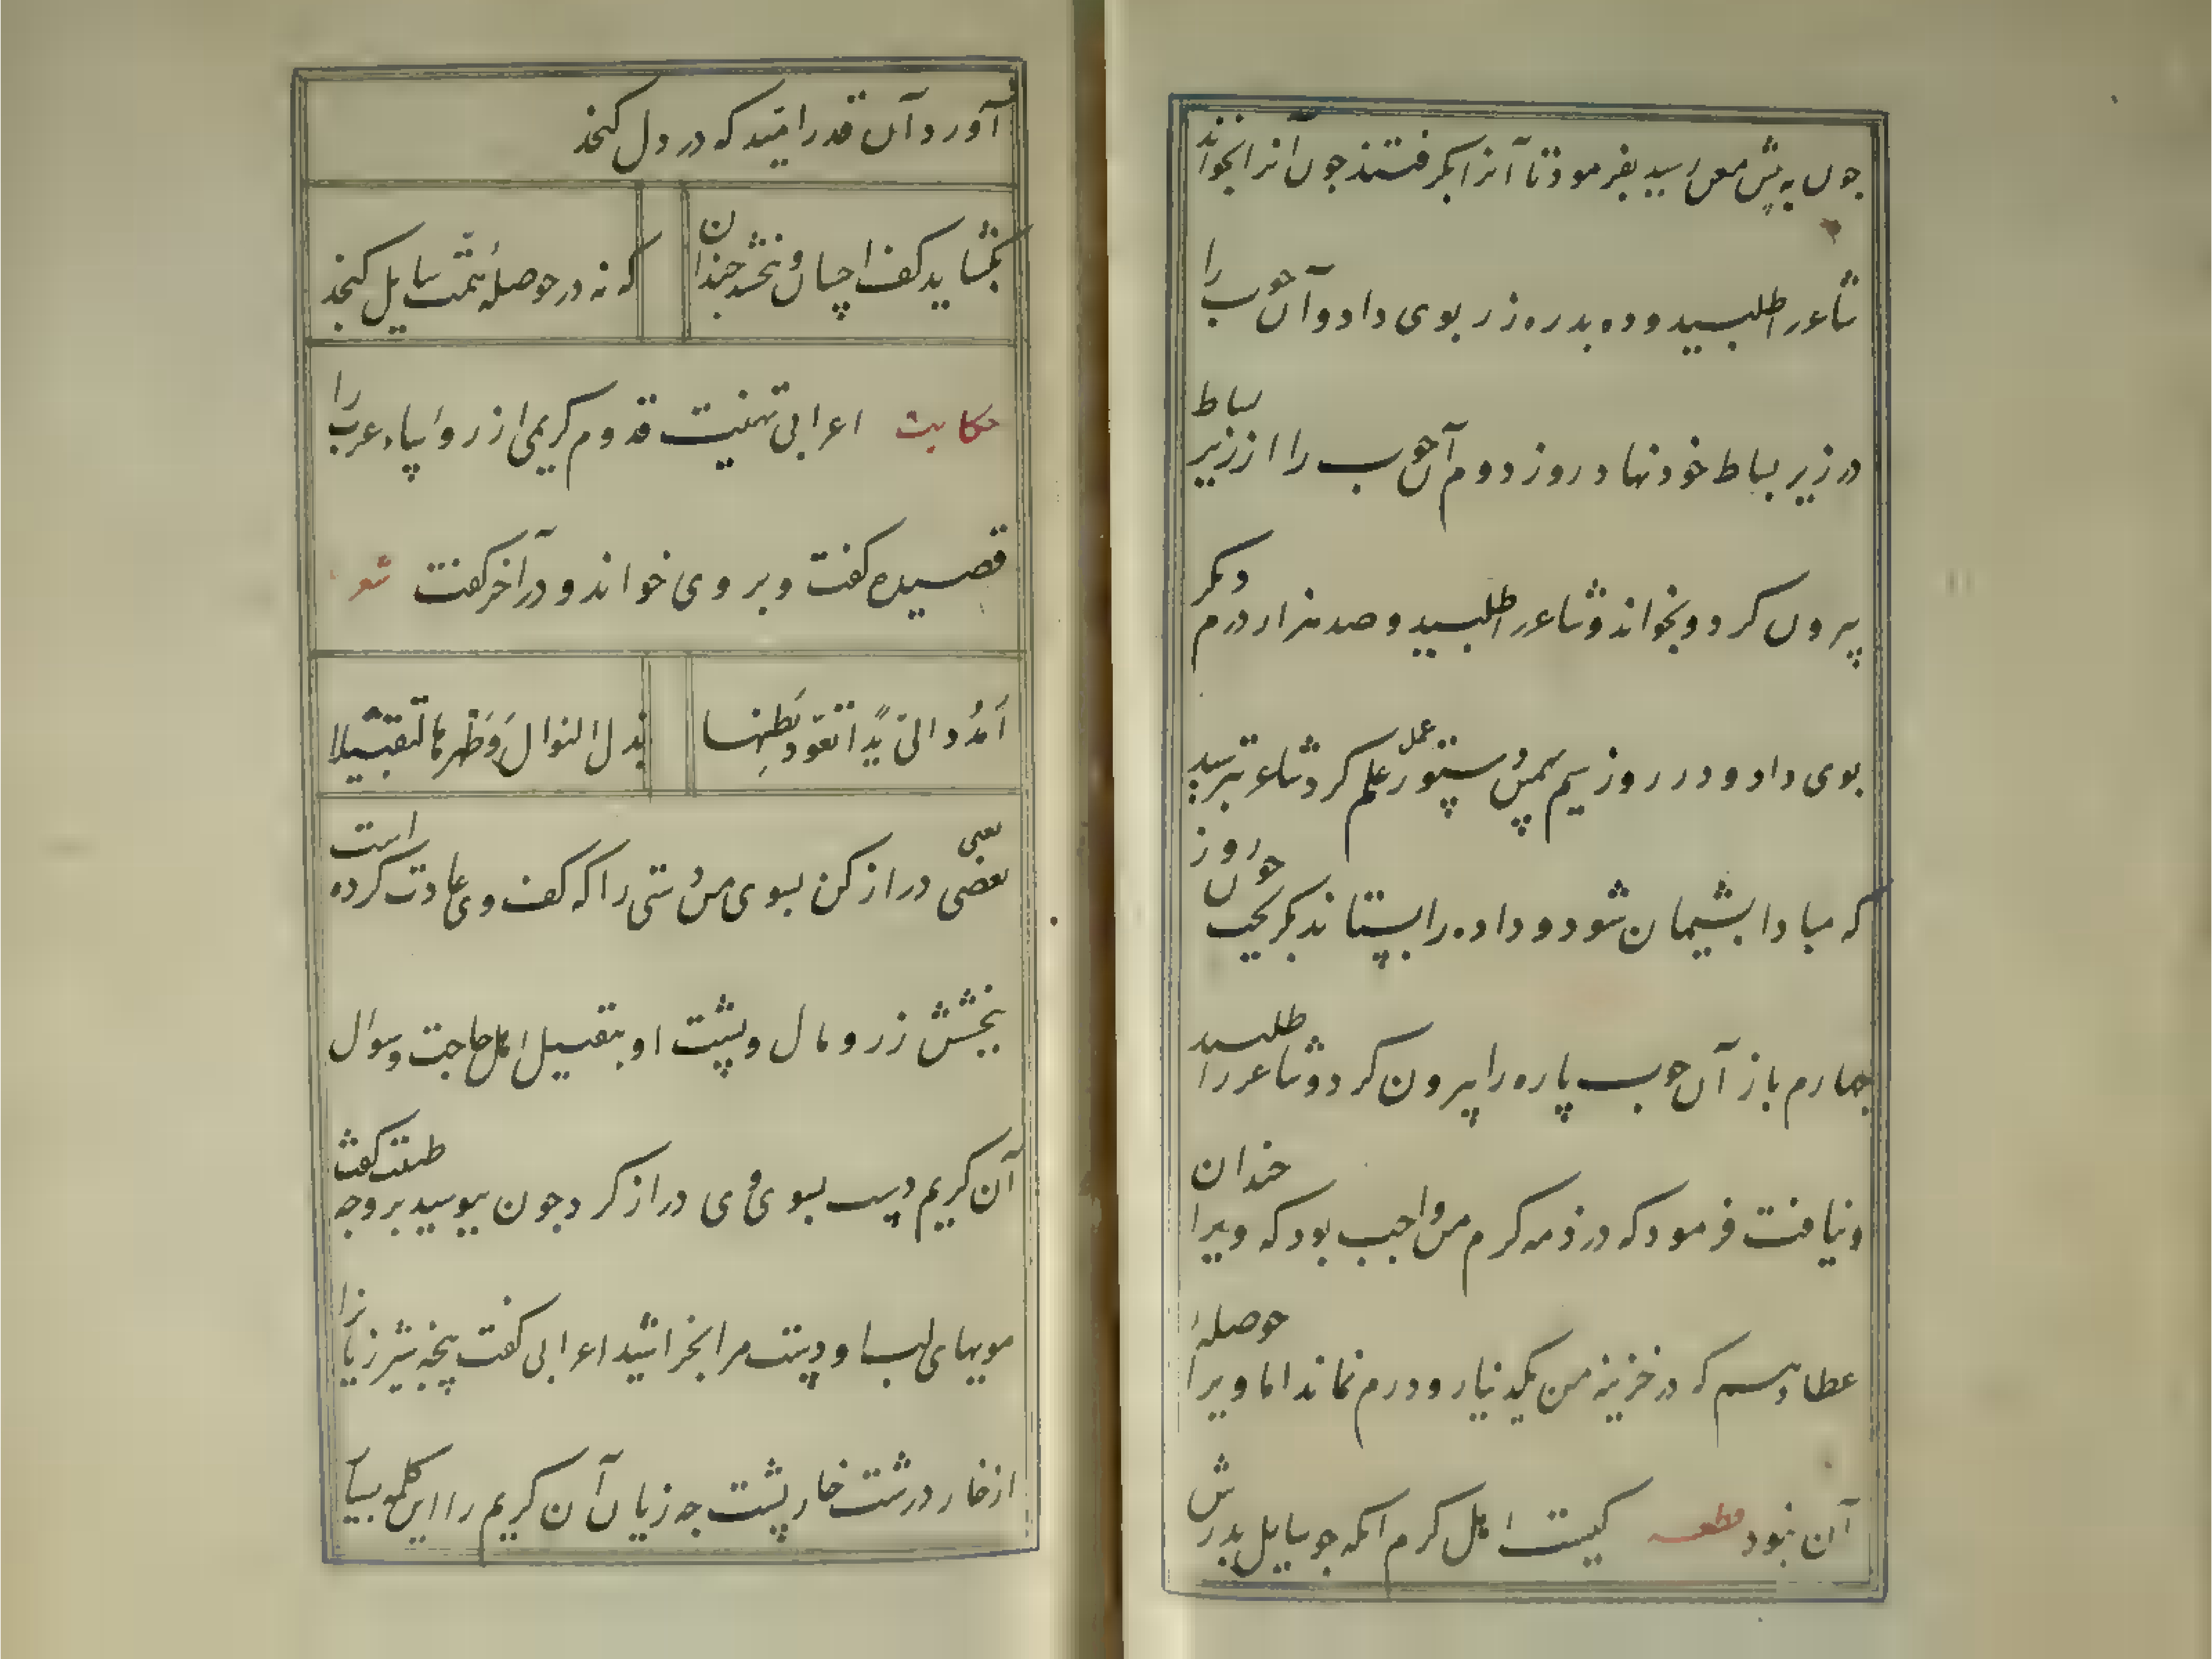 چون به پیش معن رسید بفرمود تا آنرا بگرفتند چون آنرا بخواند
شاعر را طلبید و ده بدره زر بوی داد و آن چوب را
در زیر بساط خود نهاد روز دوم آن چوب را از زیر بساط
بیرون کرد و بخواند و شاعر را طلبید و صد هزار درم دیگر
بوی داد و در روز سیم همین دستور عمل کرد شاعر بترسید
که مبادا پشیمان شود و داده را بستاند بگریخت چون روز
چهارم باز آن چوب پاره را بیرون کرد و شاعر را طلبید
و نیافت فرمود که در ذمه کرم من واجب بود که ویرا چندان
عطا دهم که در خزینه من یکدینار و درم نماند اما ویرا حوصلهٔ
آن نبود قطعه کیست اهل کرم آنکه چو سایل بدرش
آورد آن قدر امید که در دل گنجد
بگشاید کف احسان و ببخشد چندان
که نه در حوصلهٔ همت سایل گنجد
حکایت اعرابی تهنیت قدوم کریمی از رؤسای عرب را
قصیده گفت و بر وی خواند و در آخر گفت شعر
اُمدُد الیّ یدًا تعوّد بَطنُها
بذل النوال وَظَهرها التقبیلا
یعنی دراز کن بسوی من دستی را که کف وی عادت کرده است
ببخشش زر و مال و پشت او بتقبیل اهل حاجت و سؤال
آن کریم دست بسوی وی دراز کرد چون ببوسید بر وجه طیبت گفت
مویهای لب او دست مرا بخراشید اعرابی گفت پنجه شیر ژیانرا
از خار درشت خارپشت چه زیان آن کریم را این کلمه بسیار